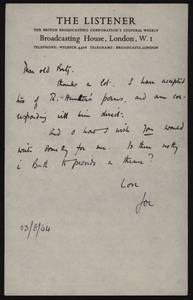 THE LISTENER
THE BRITISH BROADCASTING CORPORATION'S CULTURAL WEEKLY
Broadcasting House, London, W.1
TELEPHONE: WELBECK 4468 TELEGRAMS: BROADCASTS, LONDON
Dear old
thanks a lot. I have accepted
two of R. poems, and am corr-
esponding with him direct.
And o how I wish You would
write something for me. Is there nothing
in Bath to provide a theme?
Love
Joe
13/8/44